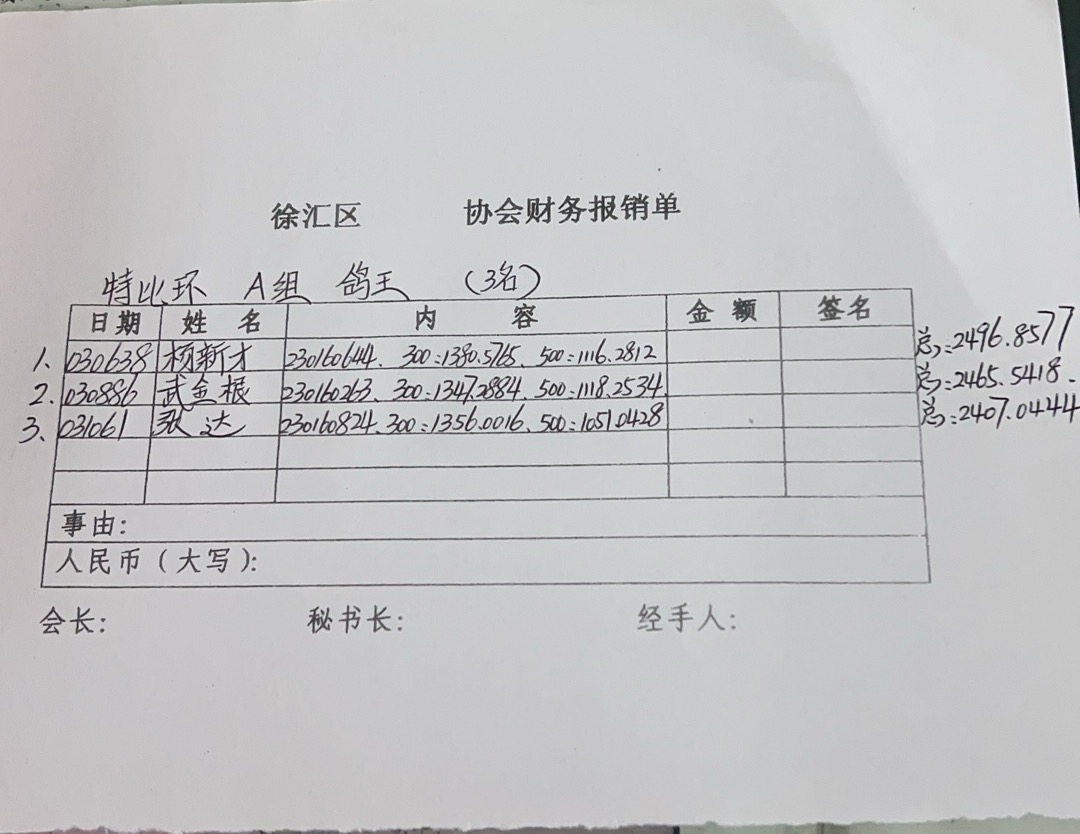 徐汇区 协会财务报销单
特比环 A组 鸽王 (3名)
日期 姓名 内容 金额 签名
1、 030638 杨新才 230160644、300:1380.5765、500:1116.2812 总:2496.8577
2、 030886 武金根 230160263、300:1347.2884、500:1118.2534 总:2465.5418.
3、 031061 张达 230160824、300:1356.0016、500:1051.0428 总:2407.0444
事由:
人民币(大写):
会长: 秘书长: 经手人: